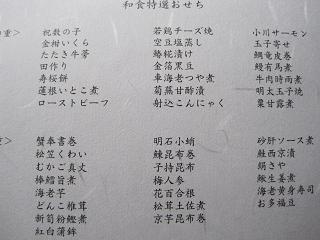 和食特選おせち
重>
祝数の子
金柑いくら
たたき牛蒡
田作り
寿桜餅
蓮根いとこ煮
ローストビーフ
若鶏チーズ焼
空豆塩蒸し
鰆糀漬け
金箔黒豆
車海老つや煮
菊蕪甘酢漬
射込こんにゃく
小川サーモン
玉子寄せ
鯛竜皮巻
鰻有馬煮
牛肉時雨煮
明太玉子焼
栗甘露煮
重>
蟹奉書巻
松笠くわい
むかご真丈
棒鱈旨煮
海老芋
どんこ椎茸
新筍粉鰹煮
紅白蒲鉾
明石小蛸
鰊昆布巻
子持昆布
梅人参
花百合根
松茸土佐煮
京芋昆布巻
砂肝ソース煮
鮭西京漬
絹さや
鰍生姜煮
海老黄身寿司
お多福豆